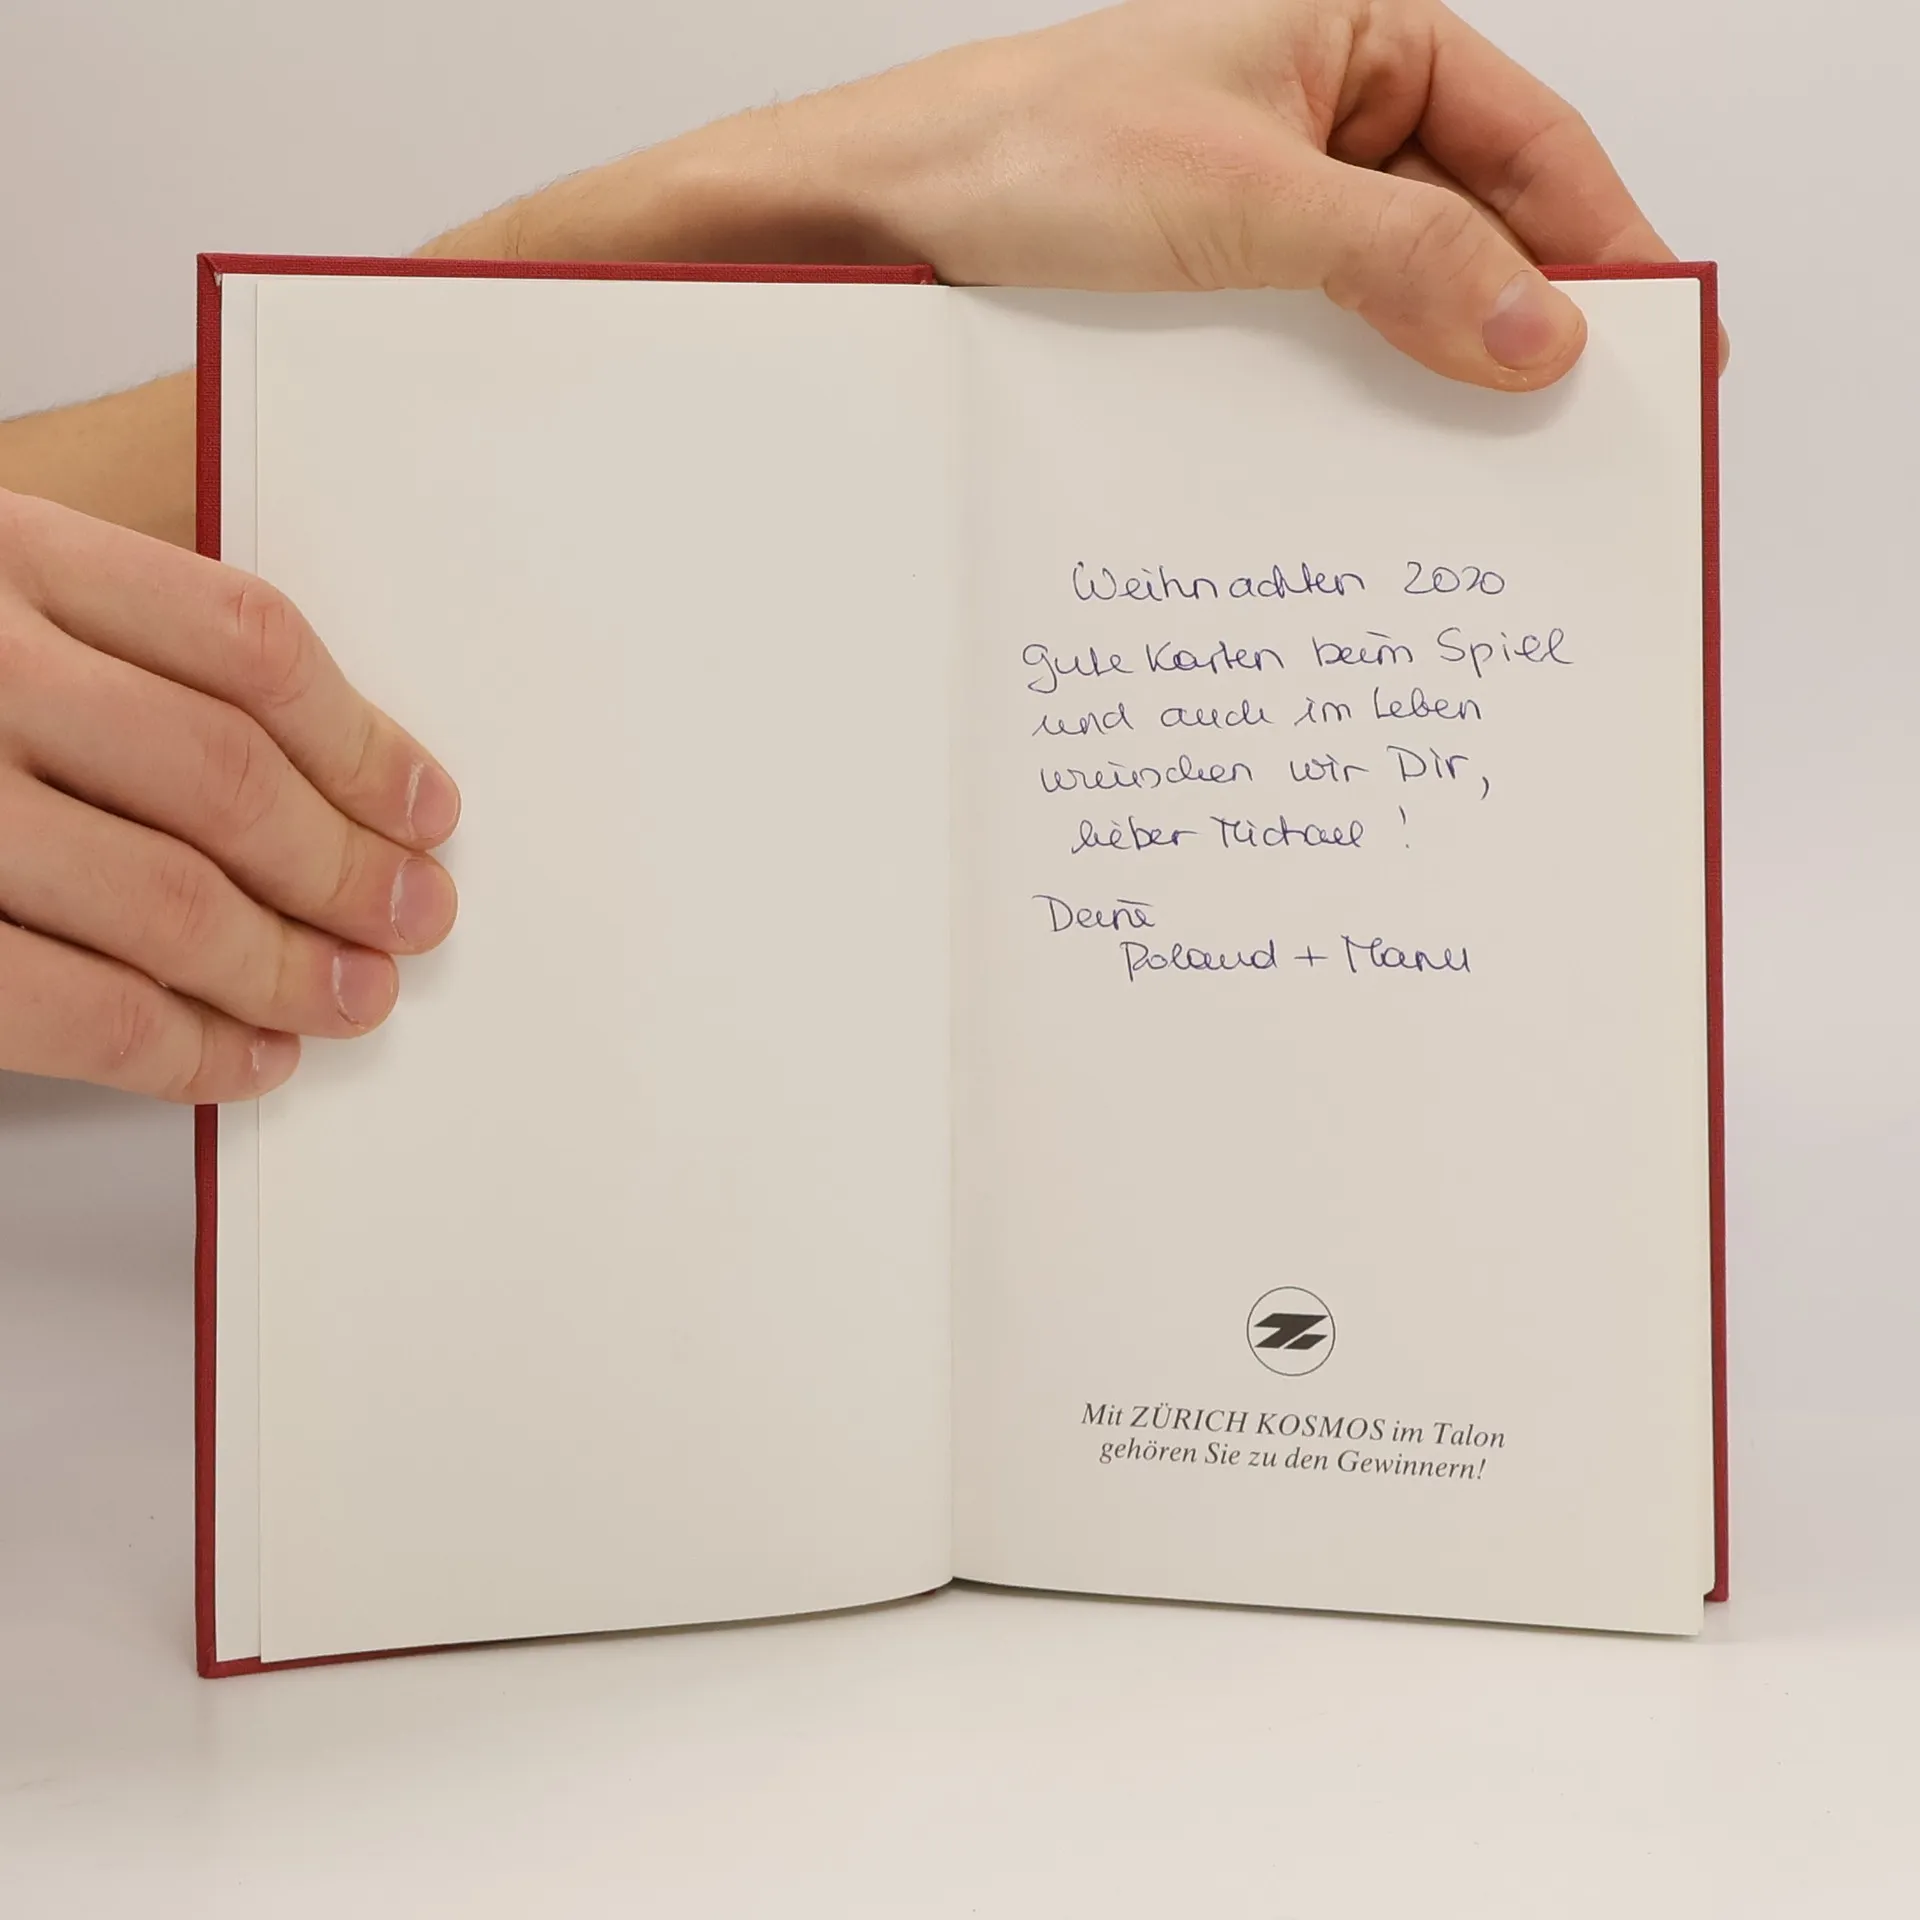 Weihnachten 2020
gute Karten beim Spiel
und auch im Leben
wünschen wir Dir,
lieber Michael !
Deine
Roland + Manu
Mit ZÜRICH KOSMOS im Talon
gehören Sie zu den Gewinnern!